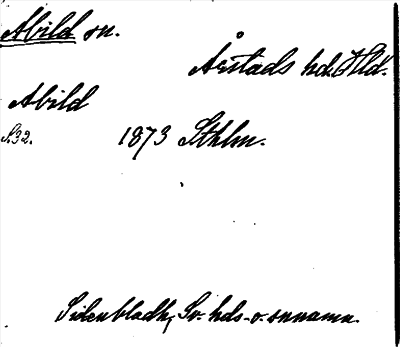 Abild sn.
Årstads hd. Hld.
Abild
S. 32. 1873 Sthlm.
Sidenbladh, Sv. hds- o. snnamn.